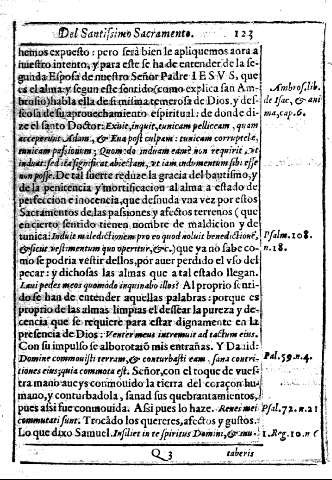 Del Santissimo Sacramento. 123
hemos expuesto: pero serà bien le apliquemos aora a
nuestro intento, y para este se ha de entender de la se-
gunda Esposa de nuestro Señor Padre IESVS, que
es el alma: y segun este sentido (como explica san Am-
brosio) habla ella de si misma temerosa de Dios, y des-
seosa de su aprouechamiento espiritual: de donde di-
ze el santo Doctor: Exuit, inquit, tunicam pelliceam, quam
acceperunt Adam, & Eua post culpam: tunicam corruptelæ,
tunicam passionum: Quomodo induam eam? non requirit, ut
induat: sed ita significat abiectam, ut iam indumentum sibi esse
non posse. De tal suerte reduze la gracia del bautismo, y
de la penitencia y mortificacion al alma a estado de
perfeccion e inocencia, que desnuda vna vez por estos
Sacramentos de las passiones y afectos terrenos (que
en cierto sentido tienen nombre de maldicion y de
tunica: Induit maledictionem pro eo quod noluit benedictionē,
& sicut vestimentum quo operitur, &c.) que ya no sabe co-
mo se podria vestir dellos, por auer perdido el vso del
pecar: y dichosas las almas que a tal estado llegan.
Laui pedes meos quomodo inquinabo illos? Al proprio senti-
do se han de entender aquellas palabras: porque es
proprio de las almas limpias el dessear la pureza y de-
cencia que se requiere para estar dignamente en la
presencia de Dios: Venter meus intremuit ad tactum eius.
Con su impulso se alborotarõ mis entrañas. Y Dauid:
Domine commouisti terram, & conturbasti eam. sana contri-
tiones eius, quia commota est. Señor, con el toque de vues-
tra mano aueys conmouido la tierra del coraçon hu-
mano, y conturbadola, sanad sus quebrantamientos,
pues assi fue conmouida. Assi pues lo haze. Renes mei
commutati sunt. Trocãdo los quereres, afectos y gustos.
Lo que dixo Samuel. Insiliet in te spiritus Domini, & mu-
Q 3 taberis
Ambros. lib.
de Isac, & ani
ma, cap. 6.
Psalm. 108.
n. 18.
Psal. 59. n. 4.
Psal. 72. n. 21
1. Reg. 10. n. 6